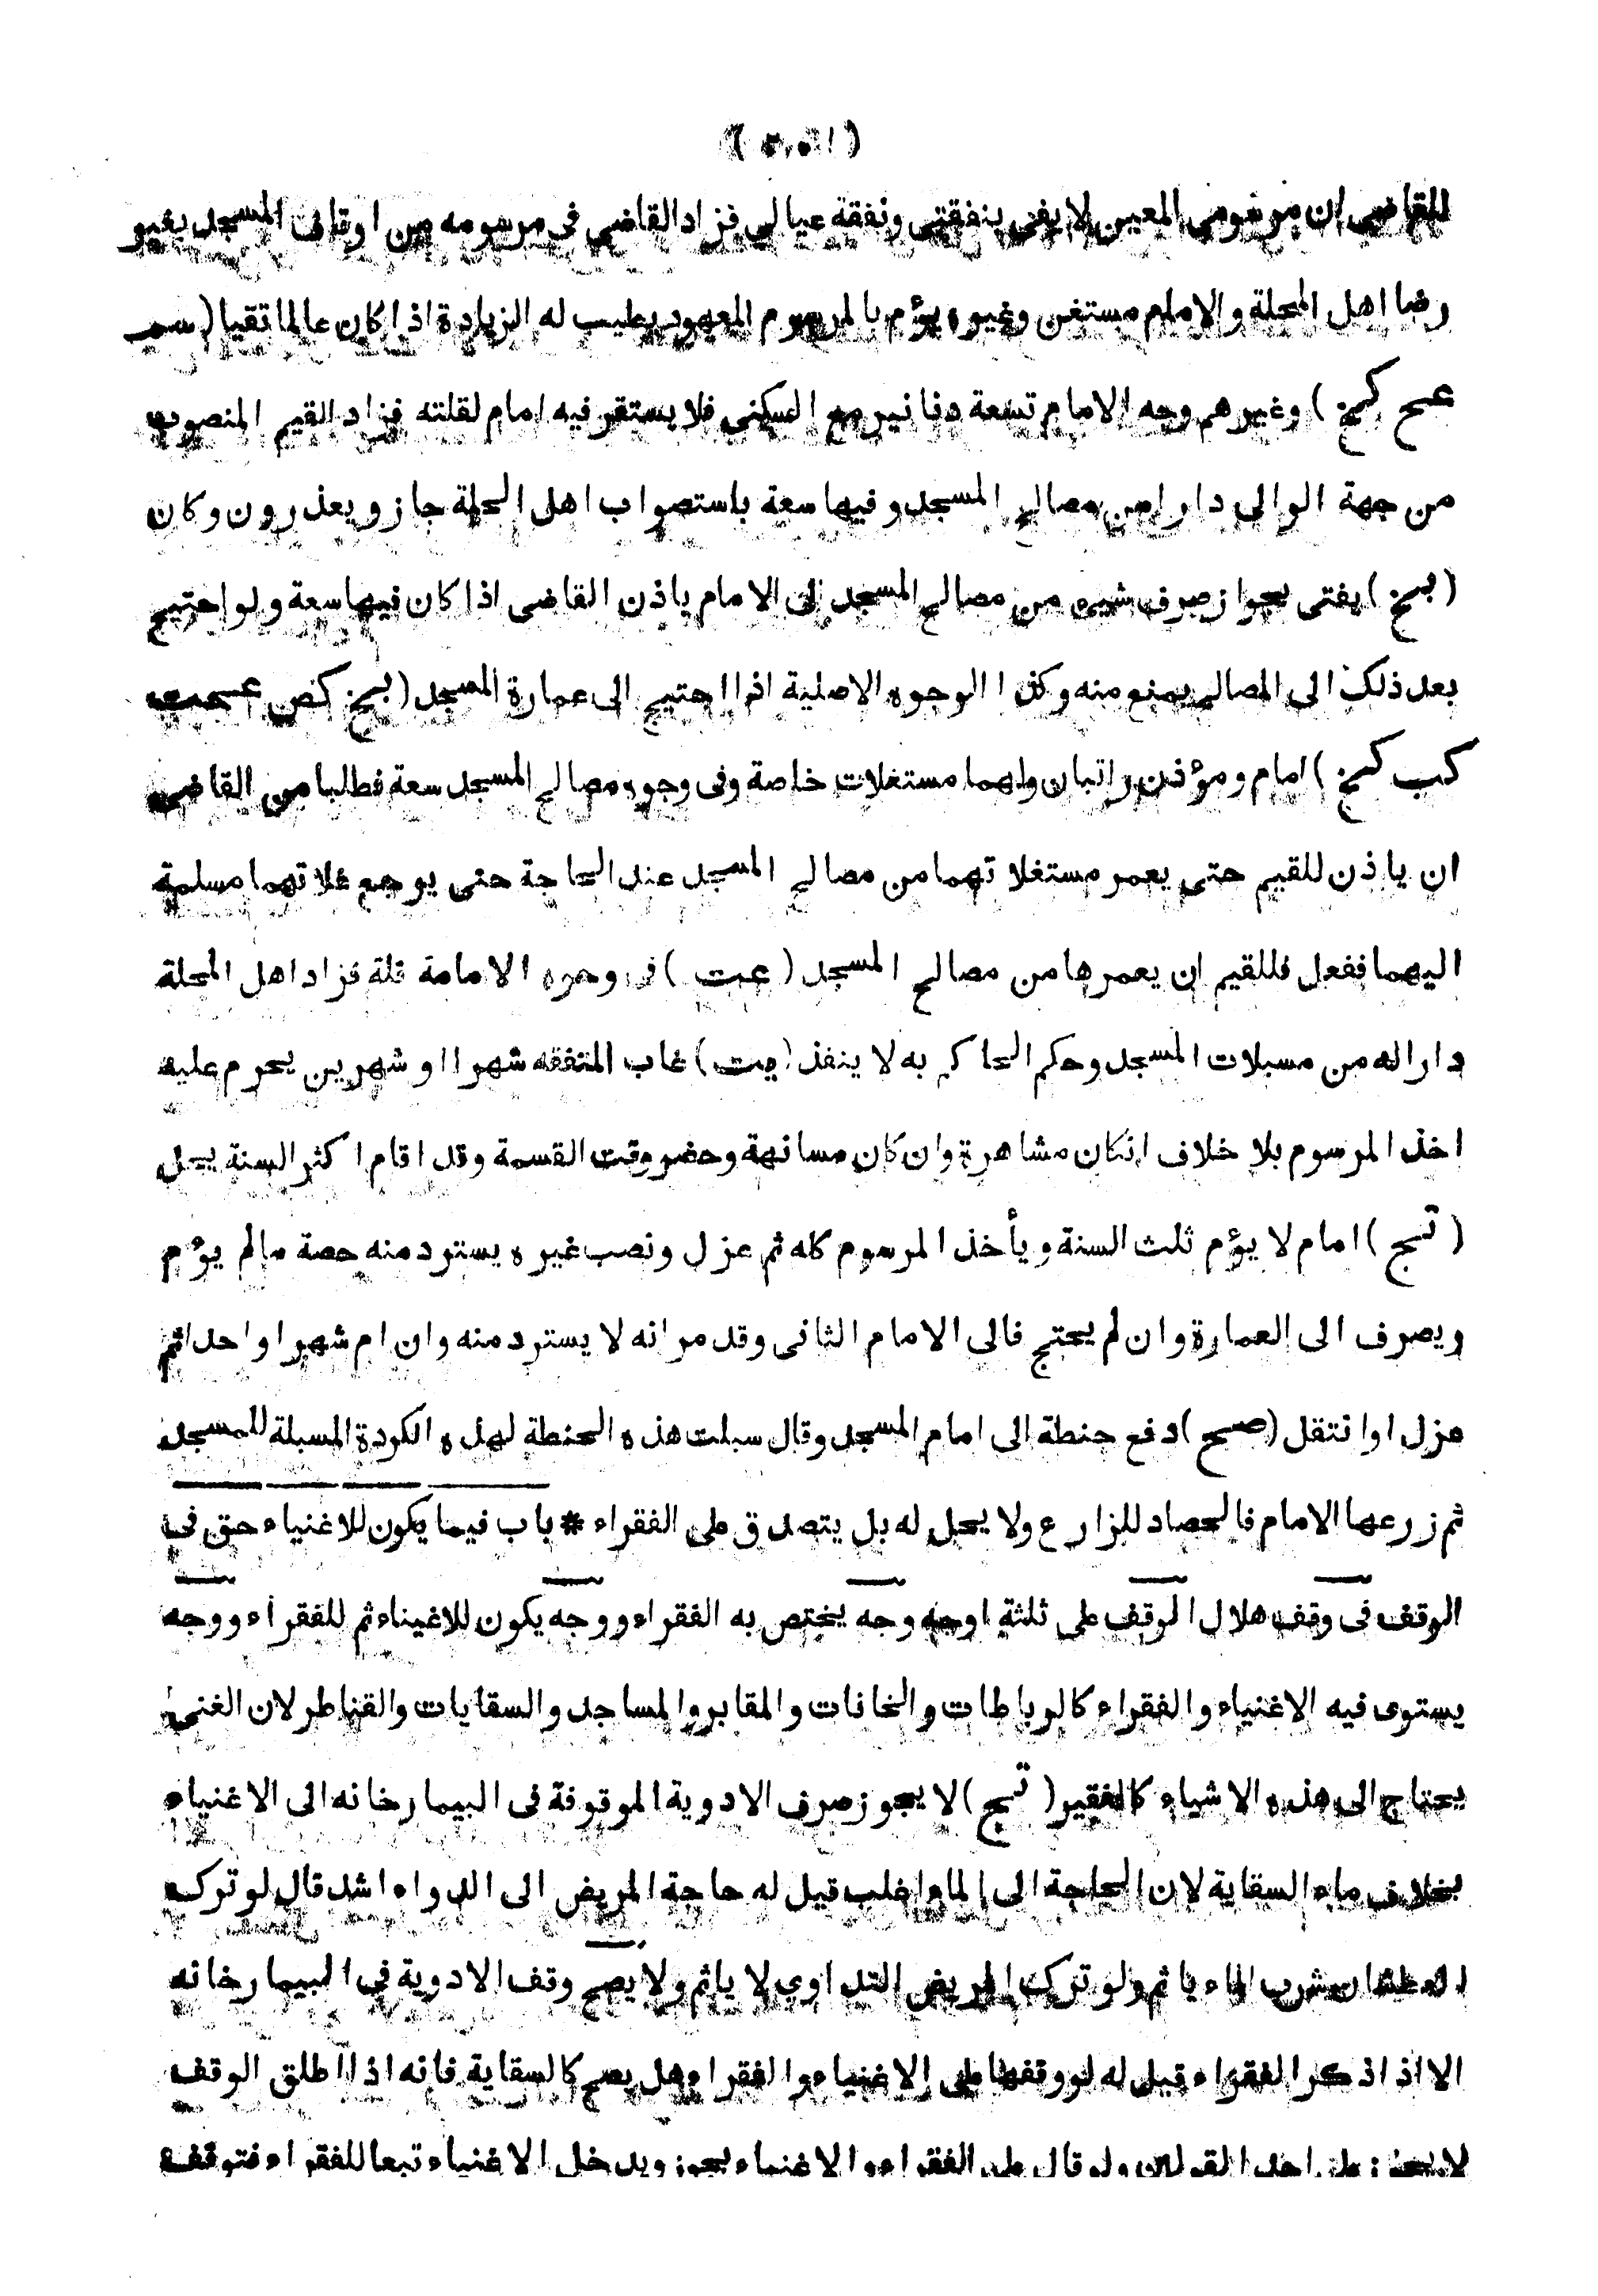 للقاضى ان مرسومى المعين لا يفى بنفقتى ونفقة عيالى فزاد القاضى فى مرسومه من اوقاف المسجد بغير
رضا اهل المحلة والامام مستغن وغيره يؤم بالمرسوم المعهود يطيب له الزيادة اذا كان عالما تقيا (سمر
عح كخ) وغيرهم وجه الامام تسعة دنانير مع السكنى فلا يستقر فيه امام لقلته فزاد القيم المنصوب
من جهة الوالى دارا من مصالح المسجد وفيها سعة باستصواب اهل المحلة جاز ويعذرون وكان
(بخ) يفتى بجواز صرف شىء من مصالح المسجد الى الامام باذن القاضى اذا كان فيها سعة ولو احتيج
بعد ذلك الى المصالح يمنع منه وكذا الوجوه الاصلية اذا احتيج الى عمارة المسجد (بخ كص
كب كخ) امام ومؤذن راتبان ولهما مستغلات خاصة وفى وجوه مصالح المسجد سعة فطلبا من القاضى
ان ياذن للقيم حتى يعمر مستغلاتهما من مصالح المسجد عند الحاجة حتى يوجع غلاتهما مسلمة
اليهما ففعل فللقيم ان يعمرها من مصالح المسجد (عت) فى وجوه الامامة قلة فزاد اهل المحلة
دارا له من مسبلات المسجد وحكم الحاكم به لا ينفذ (يت) غاب المتفقه شهرا او شهرين يحرم عليه
اخذ المرسوم بلا خلاف انكان مشاهرة وان كان مسانهة وحضر وقت القسمة وقد اقام اكثر السنة يحل
(تج) امام لا يؤم ثلث السنة ويأخذ المرسوم كله ثم عزل ونصب غيره يسترد منه حصة مالم يؤم
ويصرف الى العمارة وان لم يحتج فالى الامام الثانى وقد مر انه لا يسترد منه وان ام شهرا واحدا ثم
عزل او انتقل (صح) دفع حنطة الى امام المسجد وقال سبلت هذه الحنطة لهذه الكردة المسبلة للمسجد
ثم زرعها الامام فالحصاد للزارع ولا يحل له بل يتصدق على الفقراء * باب فيما يكون للاغنياء حق فى
الوقف فى وقف هلال الوقف على ثلثة اوجه وجه يختص به الفقراء ووجه يكون للاغنياء ثم للفقراء ووجه
يستوى فيه الاغنياء والفقراء كالرباطات والخانات والمقابر والمساجد والسقايات والقناطر لان الغنى
يحتاج الى هذه الاشياء كالفقير (تج) لا يجوز صرف الادوية الموقوفة فى البيمارخانه الى الاغنياء
بخلاف ماء السقاية لان الحاجة الى الماء اغلب قيل له حاجة المريض الى الدواء اشد قال لو ترك
العطشان شرب الماء ياثم ولو ترك المريض التداوى لا ياثم ولا يصح وقف الادوية فى البيمارخانه
الا اذا ذكر الفقراء قيل له لو وقفها على الاغنياء والفقراء هل يصح كالسقاية فانه اذا اطلق الوقف
لا يجوز على احد القولين ولو قال على الفقراء والاغنياء يجوز ويدخل الاغنياء تبعا للفقراء فتوقف